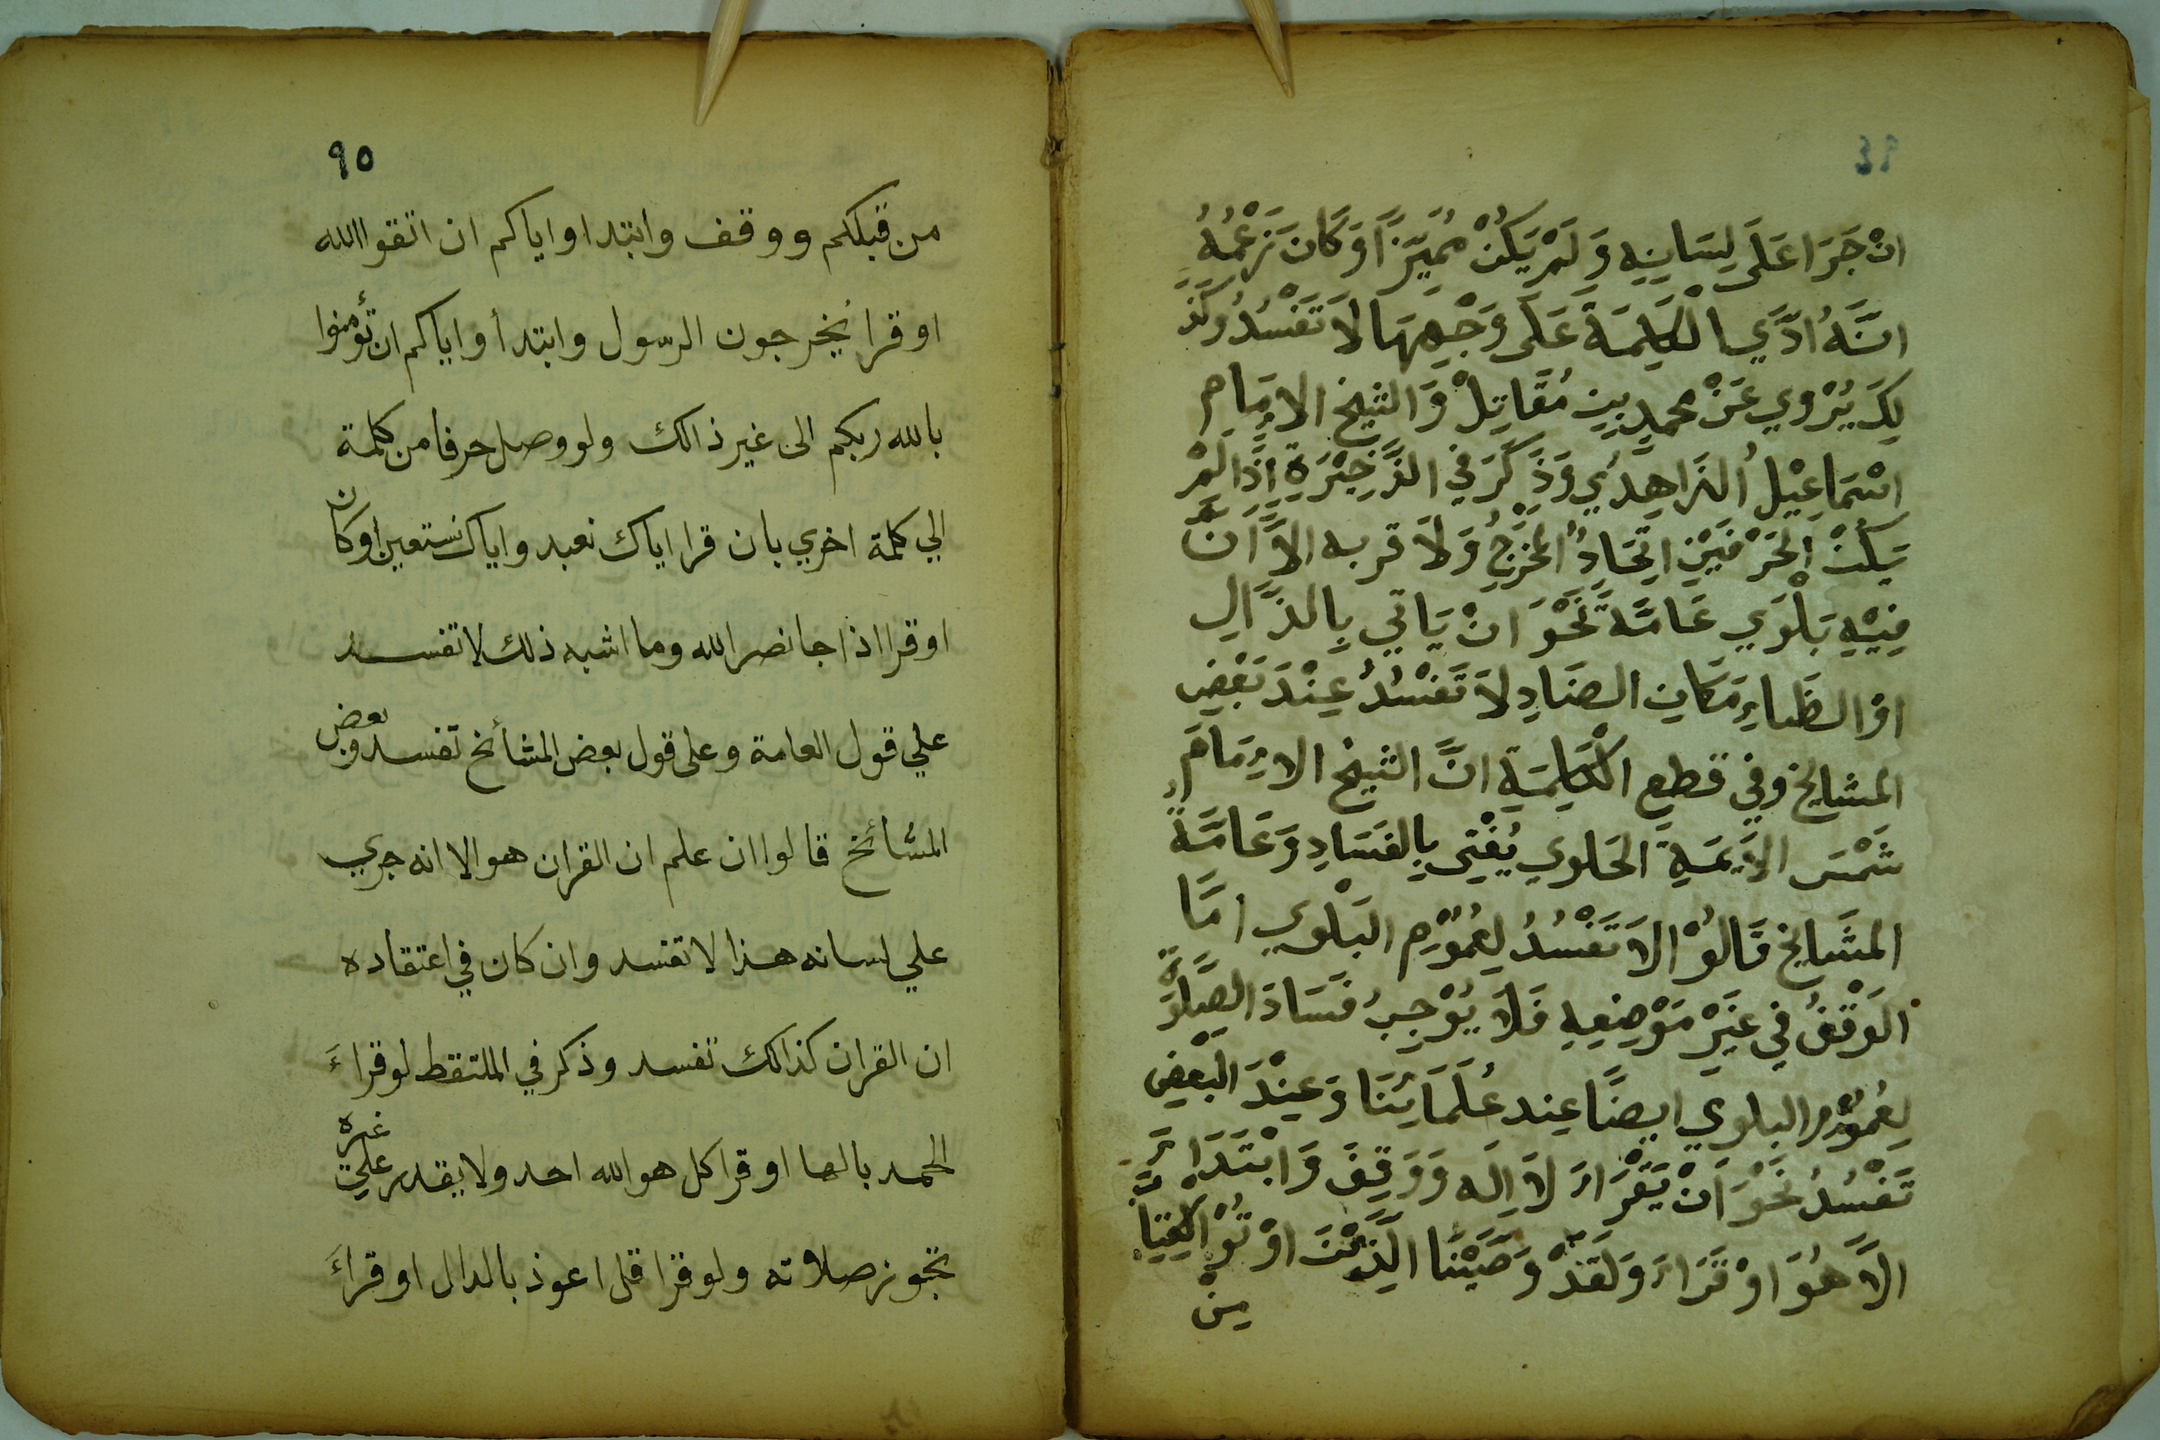 ٩٤
انْ جَرَا عَلَى لِسَانِهِ وَلَمْ يَكُنْ مُمَيِّزًا وَكَانَ زَعْمُهُ
انَّهُ ادَّي الْكَلِمَةَ عَلَى وَجْهِهَا لَا تَفْسُدُ وَكَذَ
لِكَ يُرْوي عَنْ محمدِ بِنِ مُقَاتِلْ وَالشيخ الامَامِ
اسْمَاعِيْلُ الزَاهِدُي وَذَكَرَ فِي الذَّخِيْرَةِ اِذَا لَمْ
يَكُنْ الحَرْفَيْنِ اتِحَادُ المخْرَجِ وَلَا قربه الاَّ انَّ
فِيْهِ بَلْوَي عَامَّةً نَحْوَ انْ يَاتِي بِالذَّالِ
اوْ الظَاءِ مَكَانِ الضَادِ لَا تَفْسُدُ عِنْدَ بَعْضِ
المشايخ وفي قطع الْكَلِمَةِ انَّ الشيخ الامَامَ
شَمْسَ الايمَةِ الحَلوي يُفْتِى بِالفَسَادِ وَعَامَّةُ
المشَايخ قَالُوْا لَا تَفْسُدُ لِعُمُوْمِ البَلْوي امَّا
الوَقْفُ فِي غَيْرِ مَوْضِعِهِ فَلَا يُوْجِبُ فَسَادَ الصَّلَوةِ
لِعُمُوْمِ البلوَي ايضًا عِند عُلَمَائِنَا وَعِنْدَ البَعْضِ
تَفْسُدُ نَحْوَ اَنْ يَقْرَاءَ لَا اِلَه وَوَقِفَ وَابْتَدَاءَ
الاَّ هُوَ اوْ قَرَاءَ وَلَقَدْ وَصَّيْنَا الَّذِيْنَ اوْتُوْا الكِتَابَ
مِنْ
٩٥
من قبلكم ووقف وابتدا واياكم ان اتقوا الله
او قرا يخرجون الرسول وابتدأ واياكم ان تؤمنوا
بالله ربكم الى غير ذالك ولو وصل حرفا من كلمة
الي كلمة اخري بان قرا اياك نعبد واياك نستعين او كان
او قرا اذا جا نصر الله وما اشبه ذلك لا تفسد
علي قول العامة وعلى قول بعض المشائخ تفسد وبعض
المشائخ قالوا ان علم ان القران هو الا انه جري
علي لسانه هذا لا تفسد وان كان في اعتقاده
ان القران كذالك تفسد وذكر في الملتقط لو قراءَ
الحمد بالها او قرا كل هو الله احد ولا يقدر علي غيره
تجوز صلاته ولو قرا قل اعوذ بالدال او قراءَ